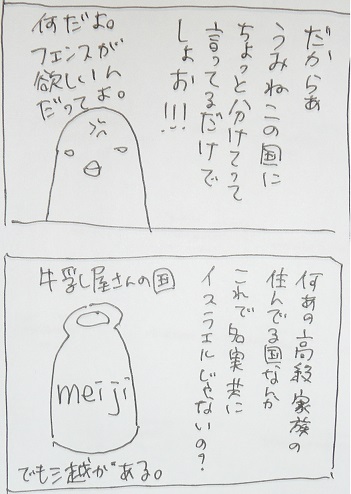 だからぁ
うみねこの国に
ちょっと分けてって
言ってるだけで
しょお!!!
何だよ。
フェンスが
欲しいん
だってよ。
何あの高級家族の
住んでる国なんか
これで名実共に
イスラエルじゃないの?
牛乳屋さんの国
meiji
でも三越がある。